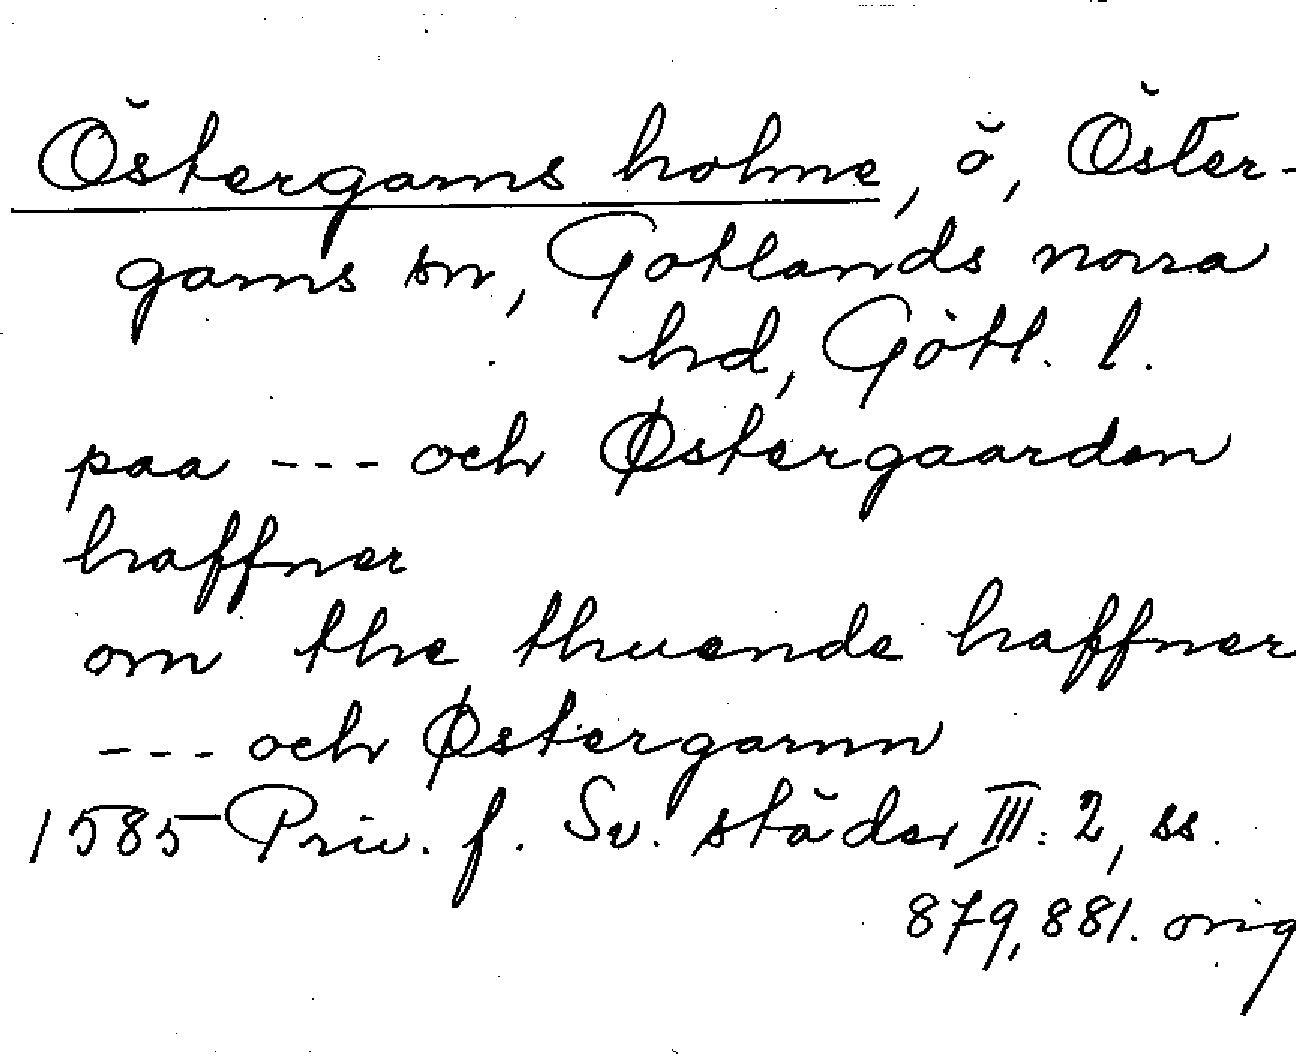 Östergarns holme, ö, Öster-
garns sn, Gotlands norra
hd, Gotl. l.
paa --- och Østergaarden
haffner
om the thuende haffner
--- och Østergarnn
1585 Priv. f. Sv. städer III: 2, ss.
879, 881. orig